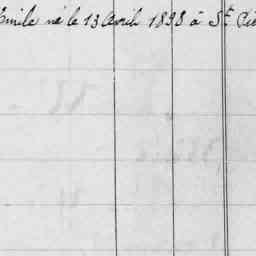 Emile né le 13 Avril 1898 à St